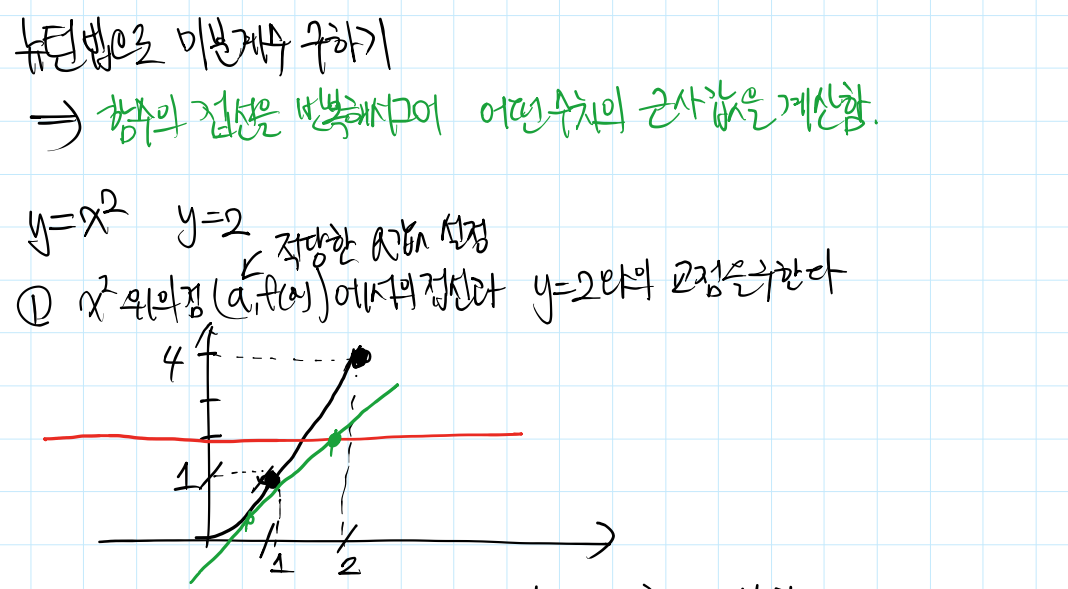 뉴턴법으로 미분계수 구하기
⇒ 함수의 접선을 반복해서그어 어떤수치의 근사값을 계산함.
y=x² y=2
적당한 a값 선정
① x² 위의점 (a, f(a)) 에서의 접선과 y=2와의 교점을구한다
4
1
1 2